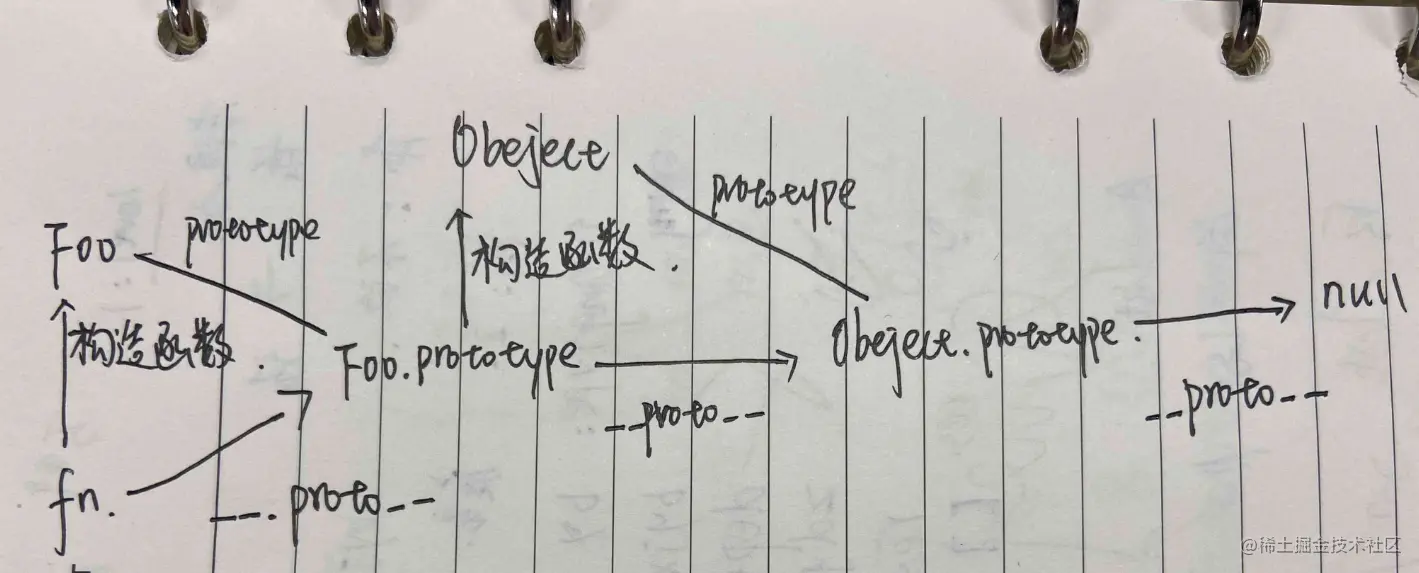 Obeject
prototype
Foo
prototype
构造函数.
构造函数.
Foo.prototype
Obeject.prototype.
null
__proto__
__proto__
fn.
__.proto__
@稀土掘金技术社区